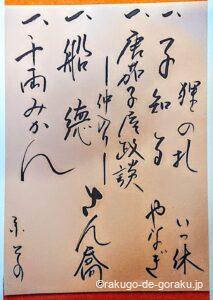 狸の札 いっ休
一、子知る やなぎ
一、唐茄子屋政談
―仲入り―
一、船徳 さん喬
一、千両みかん
©rakugo-de-goraku.jp